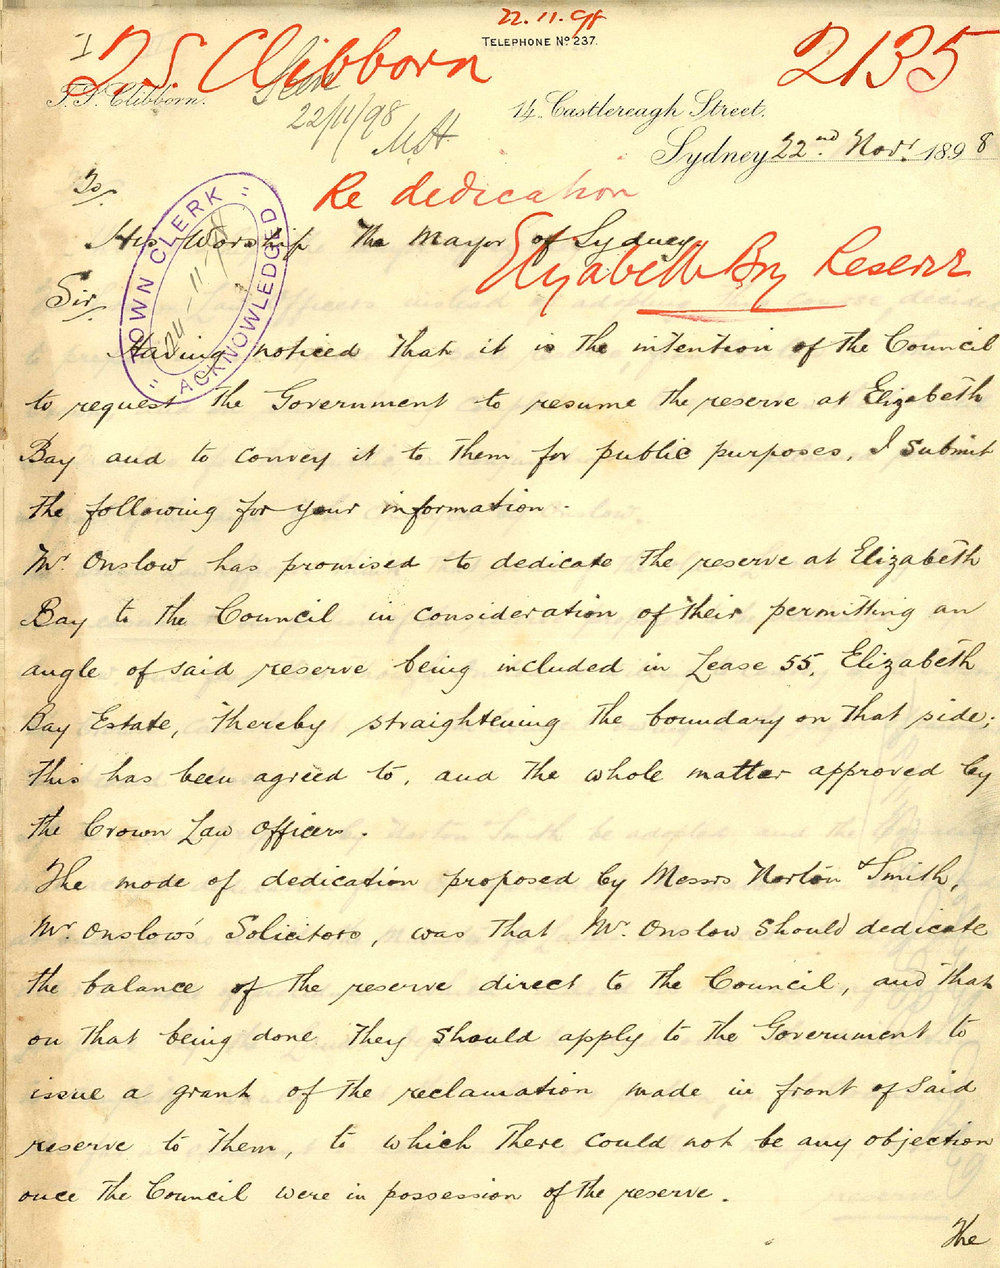 22.11.98
TELEPHONE Nº 237.
I
T S. Clibborn
2135
T. S. Clibborn.
Seen
22/11/98
14, Castlereagh Street.
Sydney 22nd Novr. 1898
To/
Re dedication
His Worship The Mayor of Sydney
Elizabeth Bay Reserve
Sir/
"TOWN CLERK"
24-11-98
ACKNOWLEDGED
Having noticed that it is the intention of the Council
to request the Government to resume the reserve at Elizabeth
Bay and to convey it to them for public purposes, I submit
the following for your information.
Mr. Onslow has promised to dedicate the reserve at Elizabeth
Bay to the Council in consideration of their permitting an
angle of said reserve being included in Lease 55, Elizabeth
Bay Estate, thereby straightening the boundary on that side;
this has been agreed to, and the whole matter approved by
the Crown Law Officers.
The mode of dedication proposed by Messrs Norton & Smith,
Mr. Onslow's Solicitors, was that Mr. Onslow should dedicate
the balance of the reserve direct to the Council, and that
on that being done they should apply to the Government to
issue a grant of the reclamation made in front of said
reserve to them, to which there could not be any objection
once the Council were in possession of the reserve.
The